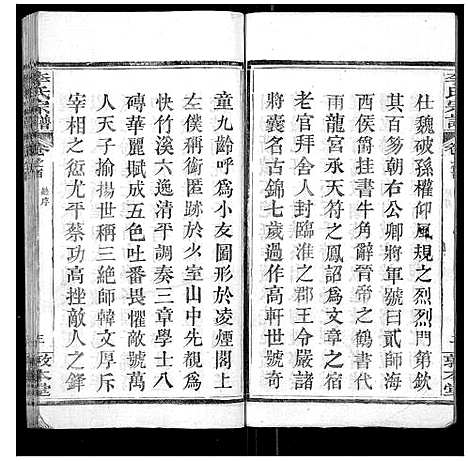 仕魏破孫權仰風規之烈烈門第欽
其百笏朝右公卿將軍號曰貳師海
西侯肩挂書牛角辭管帝之鶴書代
雨龍宮承天符之鳳詔為文章之宿
老官拜舍人封臨淮之郡王令弟號
將囊名古錦七歲過作高軒世號奇
李氏宗譜
卷首
敦本堂
童九齡呼為小友圖形於凌煙閣上
左僕稱銜匿跡於少室山中先覩為
快竹溪六逸清平調奏三章學士八
磚華麗賦成五色吐番畏懼敵號萬
人天子揄揚世稱三絕師韓文厚斥
宰相之愆尤平蔡功高挫敵人之鋒
李氏宗譜
卷首
總序
三
敦本堂